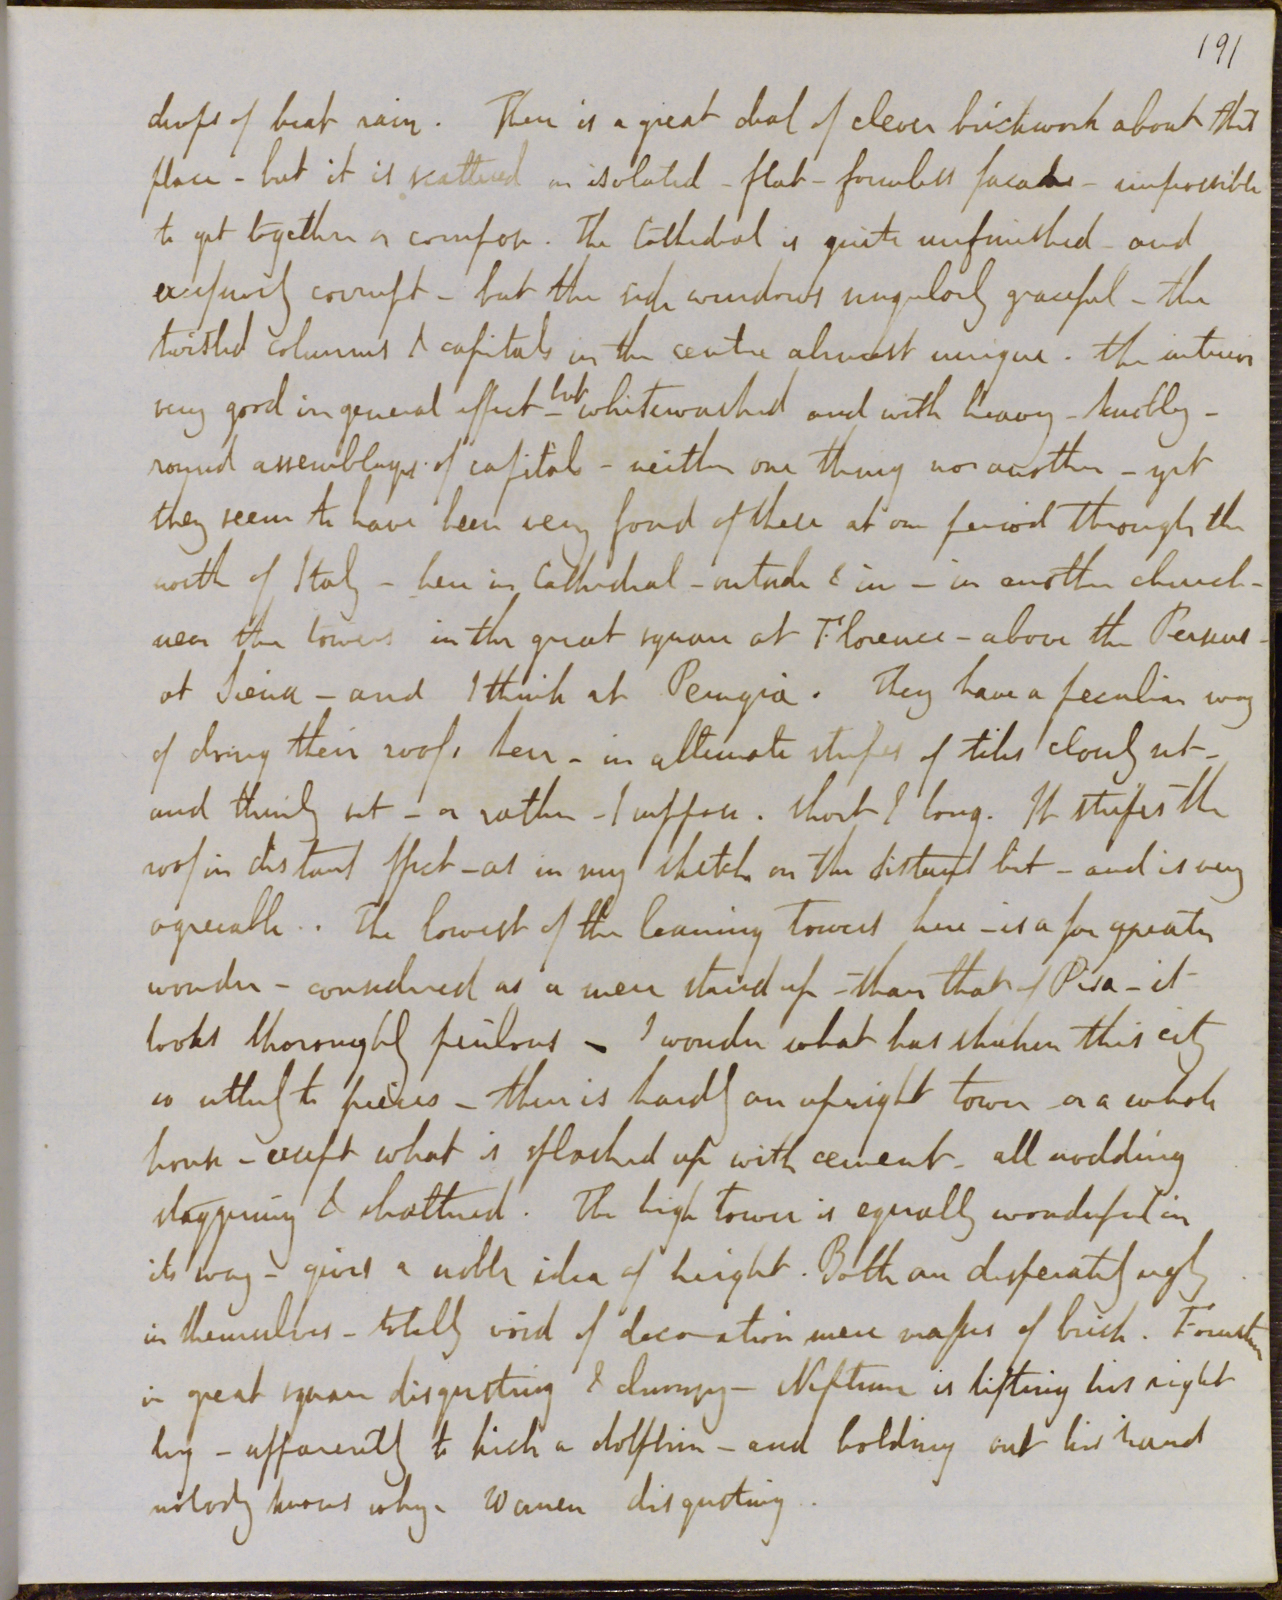 191
drops of heat rain. There is a great deal of clever brickwork about this
place - but it is scattered in isolated - flat - formless facades - impossible
to get together or compose. The Cathedral is quite unfinished - and
excessively corrupt - but the side windows singularly graceful - the
twisted columns & capitals in the centre almost unique. The interior
very good in general effect - but whitewashed and with heavy - knobbly -
round assemblages of capitals - neither one thing nor another - yet
they seem to have been very fond of these at one period through the
north of Italy - here in Cathedral - outside & in - in another church -
near the towers in the great square at Florence - above the Perseus -
at Siena - and I think at Perugia. They have a peculiar way
of doing their roofs here - in alternate stripes of tiles closely set -
and thinly set - or rather - I suppose. short & long. It stripes the
roof in distant effect - as in my sketch on the distant bit - and is very
agreeable.. The lowest of the leaning towers here - is a far greater
wonder - considered as a mere stand up - than that of Pisa - it
looks thoroughly perilous - I wonder what has shaken this city
so utterly to pieces - there is hardly an upright tower or a whole
house - except what is splashed up with cement - all nodding
staggering & shattered. The high tower is equally wonderful in
its way - gives a noble idea of height. Both are desperately ugly
in themselves - totally void of decoration mere masses of brick. Fountain
in great square disgusting & clumsy - Neptune is lifting his right
leg - apparently to kick a dolphin - and holding out his hand
nobody knows why - Women disgusting.